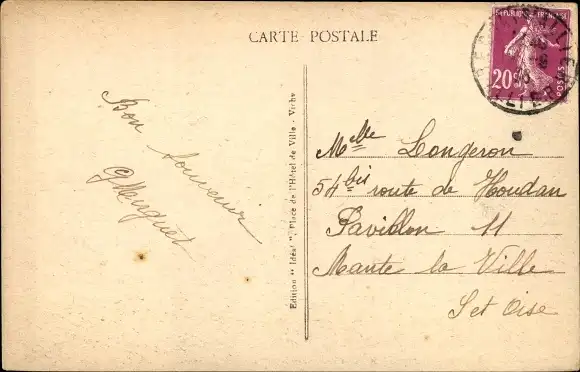 CARTE POSTALE
RÉPUBLIQUE FRANÇAISE
20c
POSTES
ALLIER
Bon souvenir
G Muguet
Edition "Idéal", Place de l'Hôtel de Ville - Vichy
Melle Longeron
54bis route de Houdan
Pavillon 11
Mante la Ville
Set Oise